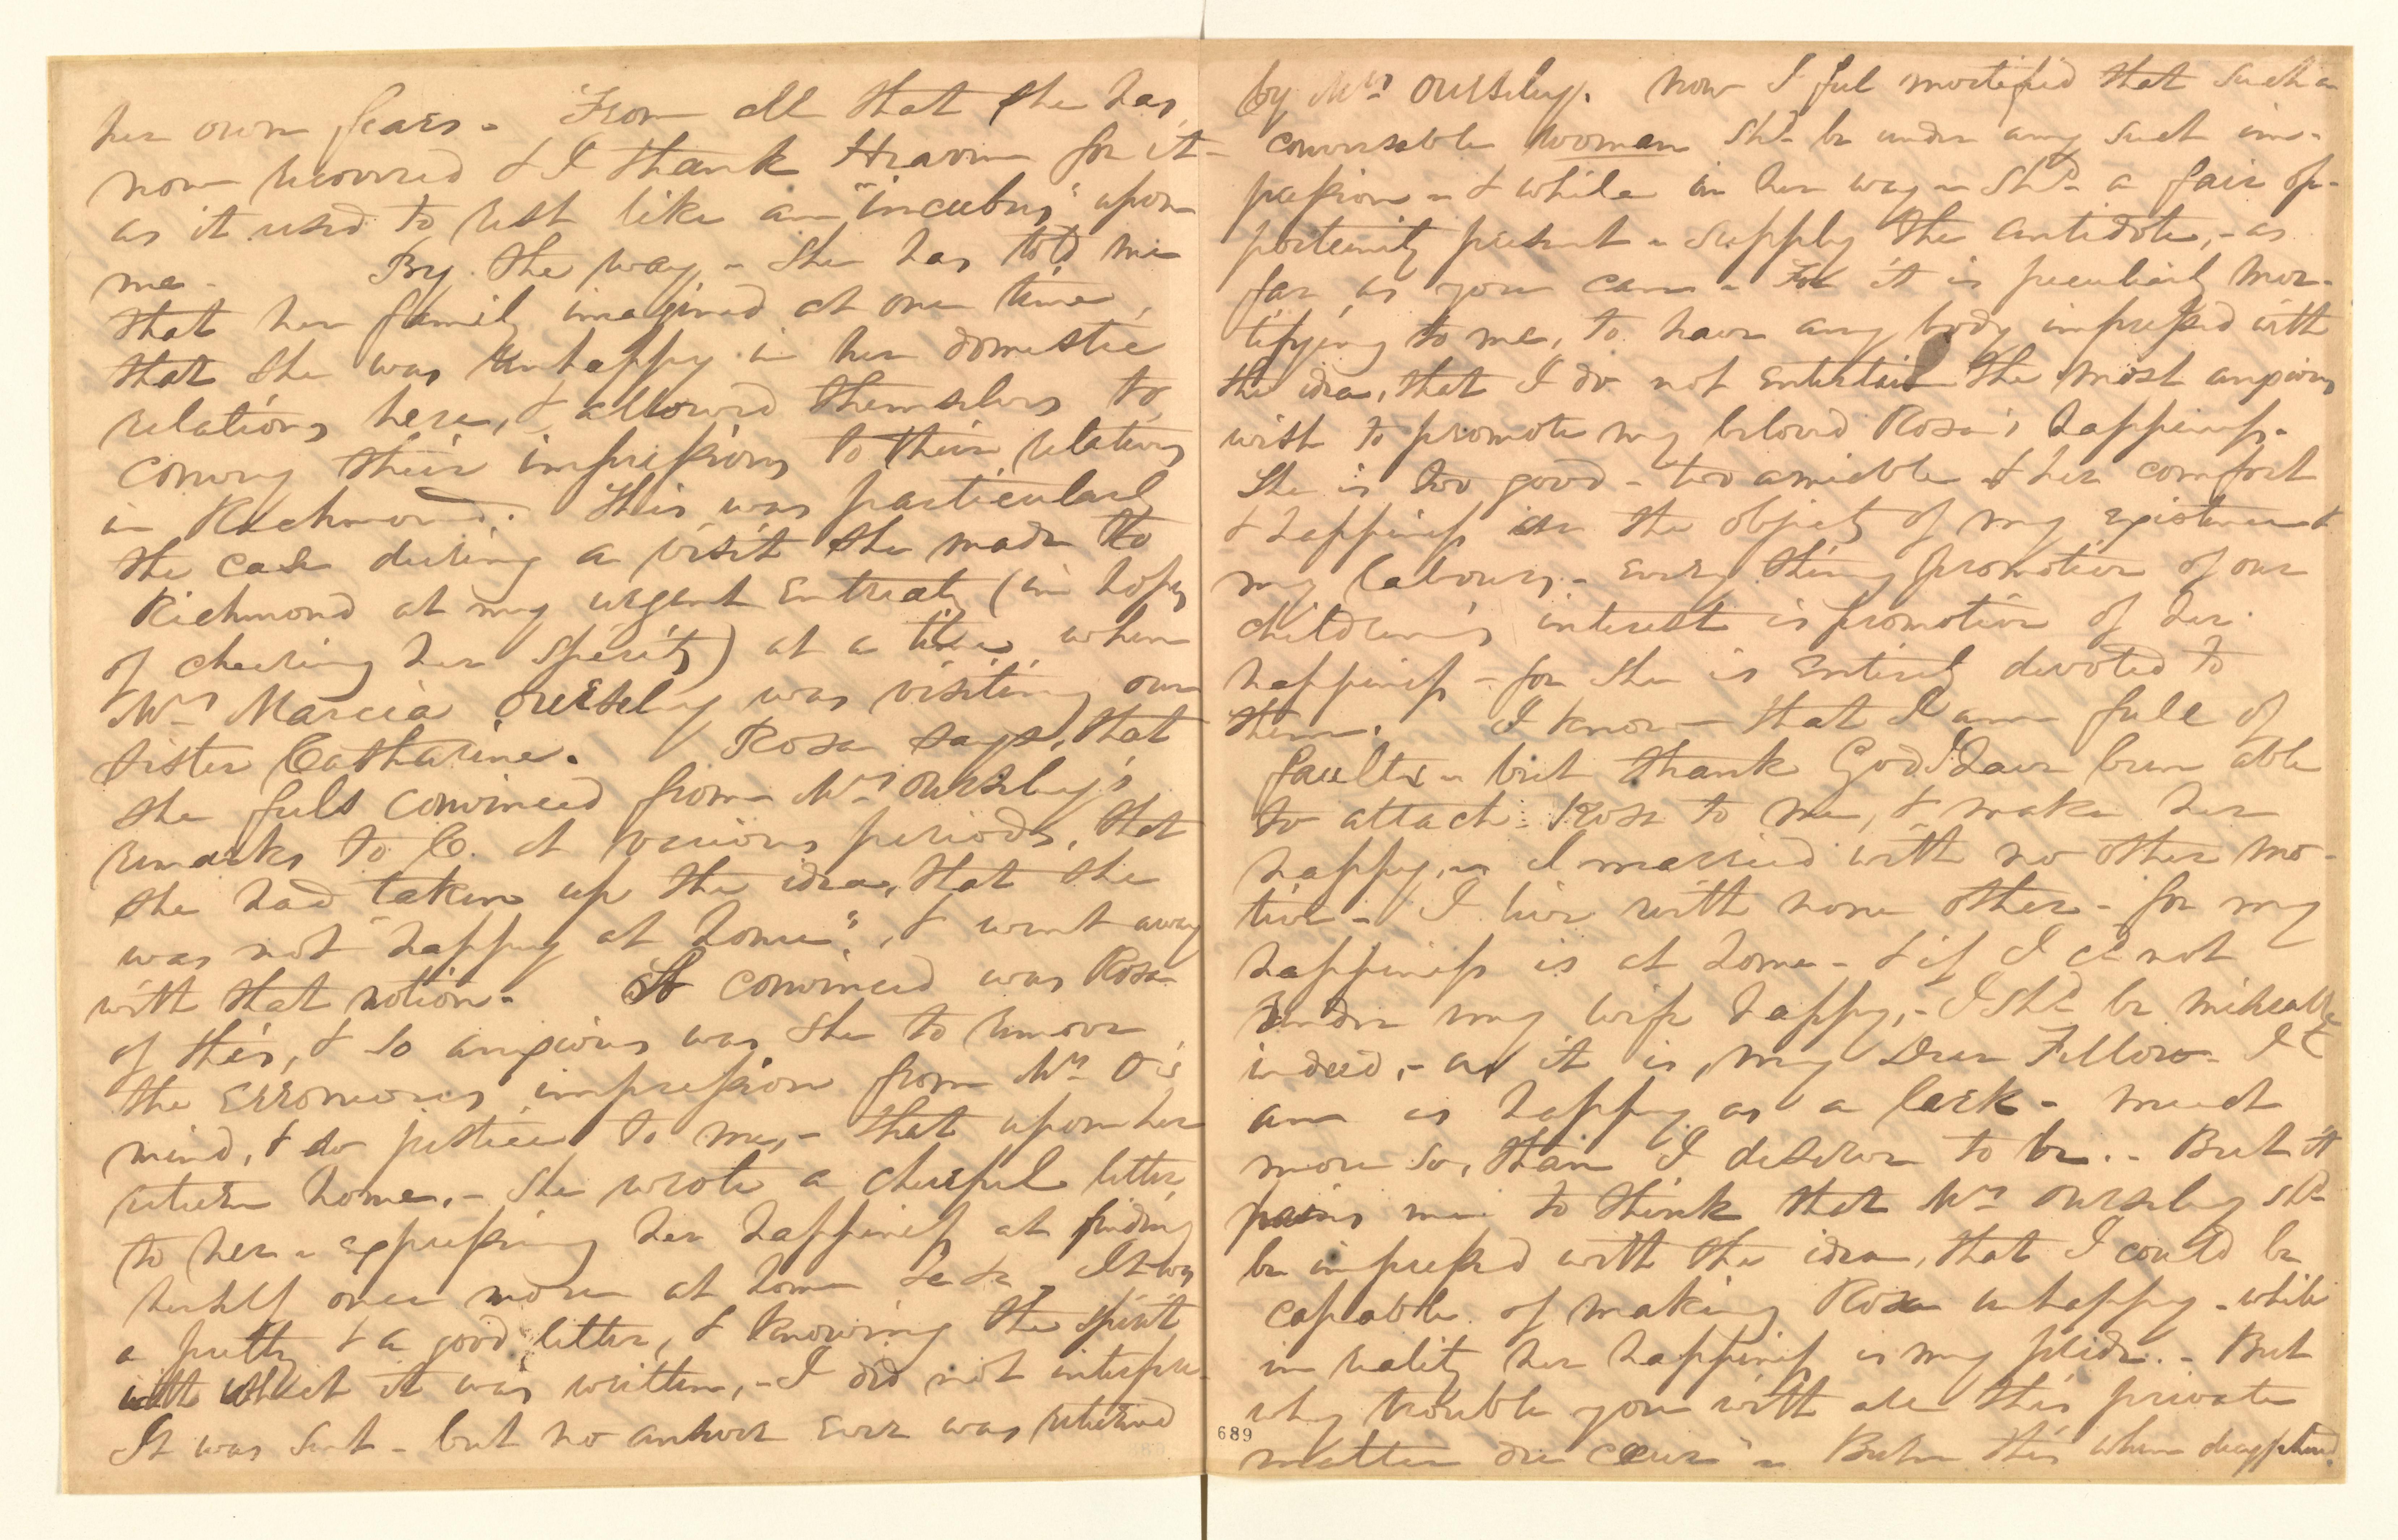 her own fears - From all that she has
now recovered & I thank Heaven for it -
as it used to rest like an "incubus" upon
me - By the way, - She has told me
that her family imagined at one time,
that she was unhappy in her domestic
relations here, & allowed themselves to
convey their impressions to their relations
in Richmond. This was particularly
the case during a visit she made to
Richmond at my urgent entreaty (in hopes
of cheering her spirits) at a time when
Mrs Marcia Ouseley was visiting our
sister Catharine. Rosa says, that
she feels convinced from Mrs Ouseley's
remarks to C. at various periods, that
she had taken up the idea, that she
was not "happy at home", & went away
with that notion. So convinced was Rosa
of this, & so anxious was she to remove
the erroneous impression from Mrs O's
mind, & do justice to me, - that upon her
return home, - she wrote a cheerful letter
to her - expressing her happiness at finding
herself once more at home &c &c. It was
a pretty & a good letter, & knowing the spirit
with which it was written, - I did not interfere
It was sent - but no answer ever was returned
by Mrs Ouseley. Now I feel mortified that such a
conversable woman shd be under any such im-
pression - & while in her way - shd a fair op-
portunity present - supply the antidote, - as
far as you can - For it is peculiarly mor-
tifying to me, to have any body impressed with
the idea, that I do not entertain the most anxious
wish to promote my beloved Rosa's happiness.
She is too good - too amiable & her comfort
& happiness are the objects of my existence &
my labours. - Every thing promotive of our
children's interest is promotive of her
happiness - for she is entirely devoted to
them. I know - that I am full of
faults - but thank God I have been able
to attach Rosa to me, & make her
happy, - I married with no other mo-
tive - I live with none other - for my
happiness is at home - & if I cd not
render my wife happy, - I shd be miserable
indeed, - as it is, my Dear Fellow - I
am as happy as a lark - much
more so, than I deserve to be. - But it
pains me to think that Mrs Ouseley shd
be impressed with the idea, that I could be
capable of making Rosa unhappy - while
in reality her happiness is my pride. - But
why trouble you with all this private
matter du coeur" - Burn this when
689